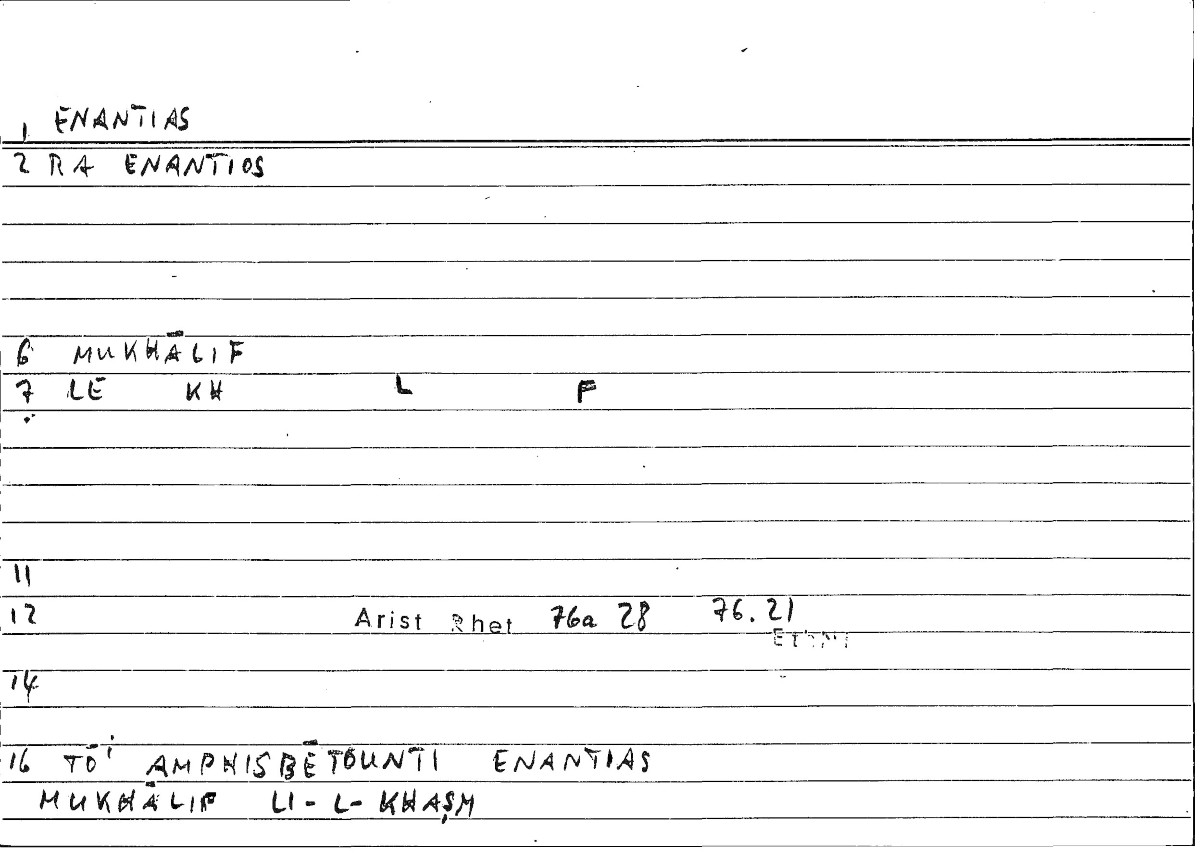 1 ENANTIAS
2 RA ENANTIOS
6 MUKHĀLIF
7 LE KH L F
11
12 Arist Rhet 76a 28 76.21
14
16 TŌⁱ AMPHISBĒTOUNTI ENANTIAS
MUKHĀLIF LI-L-KHAṢM